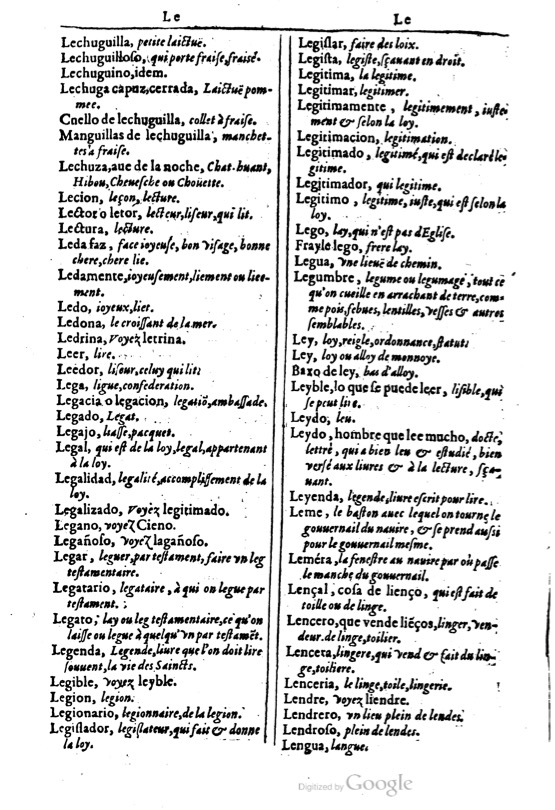 Le
Lechuguilla, petite laictuë.
Lechuguilloso, qui porte fraise, fraisé.
Lechuguino, idem.
Lechuga capuz, cerrada, Laictuë pom-
mee.
Cuello de lechuguilla, collet à fraise.
Manguillas de lechuguilla, manchet-
tes à fraise.
Lechuza, aue de la noche, Chat-huant,
Hibou, Cheuesche ou Choüette.
Lecion, leçon, lecture.
Lector o letor, lecteur, liseur, qui lit.
Lectura, lecture.
Leda faz, face ioyeuse, bon visage, bonne
chere, chere lie.
Ledamente, ioyeusement, liement ou liee-
ment.
Ledo, ioyeux, liet.
Ledona, le croissant de la mer.
Ledrina, Voyez letrina.
Leer, lire.
Leedor, liseur, celuy qui lit.
Lega, ligue, confederation.
Legacia o legacion, legatiõ, ambassade.
Legado, Legat.
Legajo, liasse, pacquet.
Legal, qui est de la loy, legal, appartenant
à la loy.
Legalidad, legalité, accomplissement de la
loy.
Legalizado, Voyez legitimado.
Legano, voyez Cieno.
Legañoso, voyez lagañoso.
Legar, leguer, par testament, faire vn leg
testamentaire.
Legatario, legataire, à qui on legue par
testament.
Legato, lay ou leg testamentaire, ce qu'on
laisse ou legue à quelqu'vn par testamẽt.
Legenda, Legende, liure que l'on doit lire
souuent, la vie des Saincts.
Legible, voyez leyble.
Legion, legion.
Legionario, legionnaire, de la legion.
Legislador, legislateur, qui fait & donne
la loy.
Le
Legislar, faire des loix.
Legista, legiste, sçauant en droit.
Legitima, la legitime.
Legitimar, legitimer.
Legitimamente, legitimement, iuste-
ment & selon la loy.
Legitimacion, legitimation.
Legitimado, legitimé, qui est declaré le-
gitime.
Legitimador, qui legitime.
Legitimo, legitime, iuste, qui est selon la
loy.
Lego, lay, qui n'est pas d'Eglise.
Frayle lego, frere lay.
Legua, vne lieuë de chemin.
Legumbre, legume ou legumage, tout ce
qu'on cueille en arrachant de terre, com-
me pois, febues, lentilles, vesses & autres
semblables.
Ley, loy, reigle, ordonnance, statut.
Ley, loy ou alloy de monnoye.
Baxo de ley, bas d'alloy.
Leyble, lo que se puede leer, lisible, qui
se peut lire.
Leydo, leu.
Leydo, hombre que lee mucho, docte,
lettré, qui a bien leu & estudié, bien
versé aux liures & à la lecture, sça-
uant.
Leyenda, legende, liure escrit pour lire.
Leme, le baston auec lequel on tourne le
gouuernail du nauire, & se prend aussi
pour le gouuernail mesme.
Leméra, la fenestre au nauire par où passe
le manche du gouuernail.
Lençal, cosa de lienço, qui est fait de
toille ou de linge.
Lencero, que vende liẽços, linger, ven-
deur de linge, toilier.
Lencera, lingere, qui vend & fait du lin-
ge, toiliere.
Lenceria, le linge, toile, lingerie.
Lendre, voyez liendre.
Lendrero, vn lieu plein de lendes.
Lendroso, plein de lendes.
Lengua, langue.
Digitized by Google